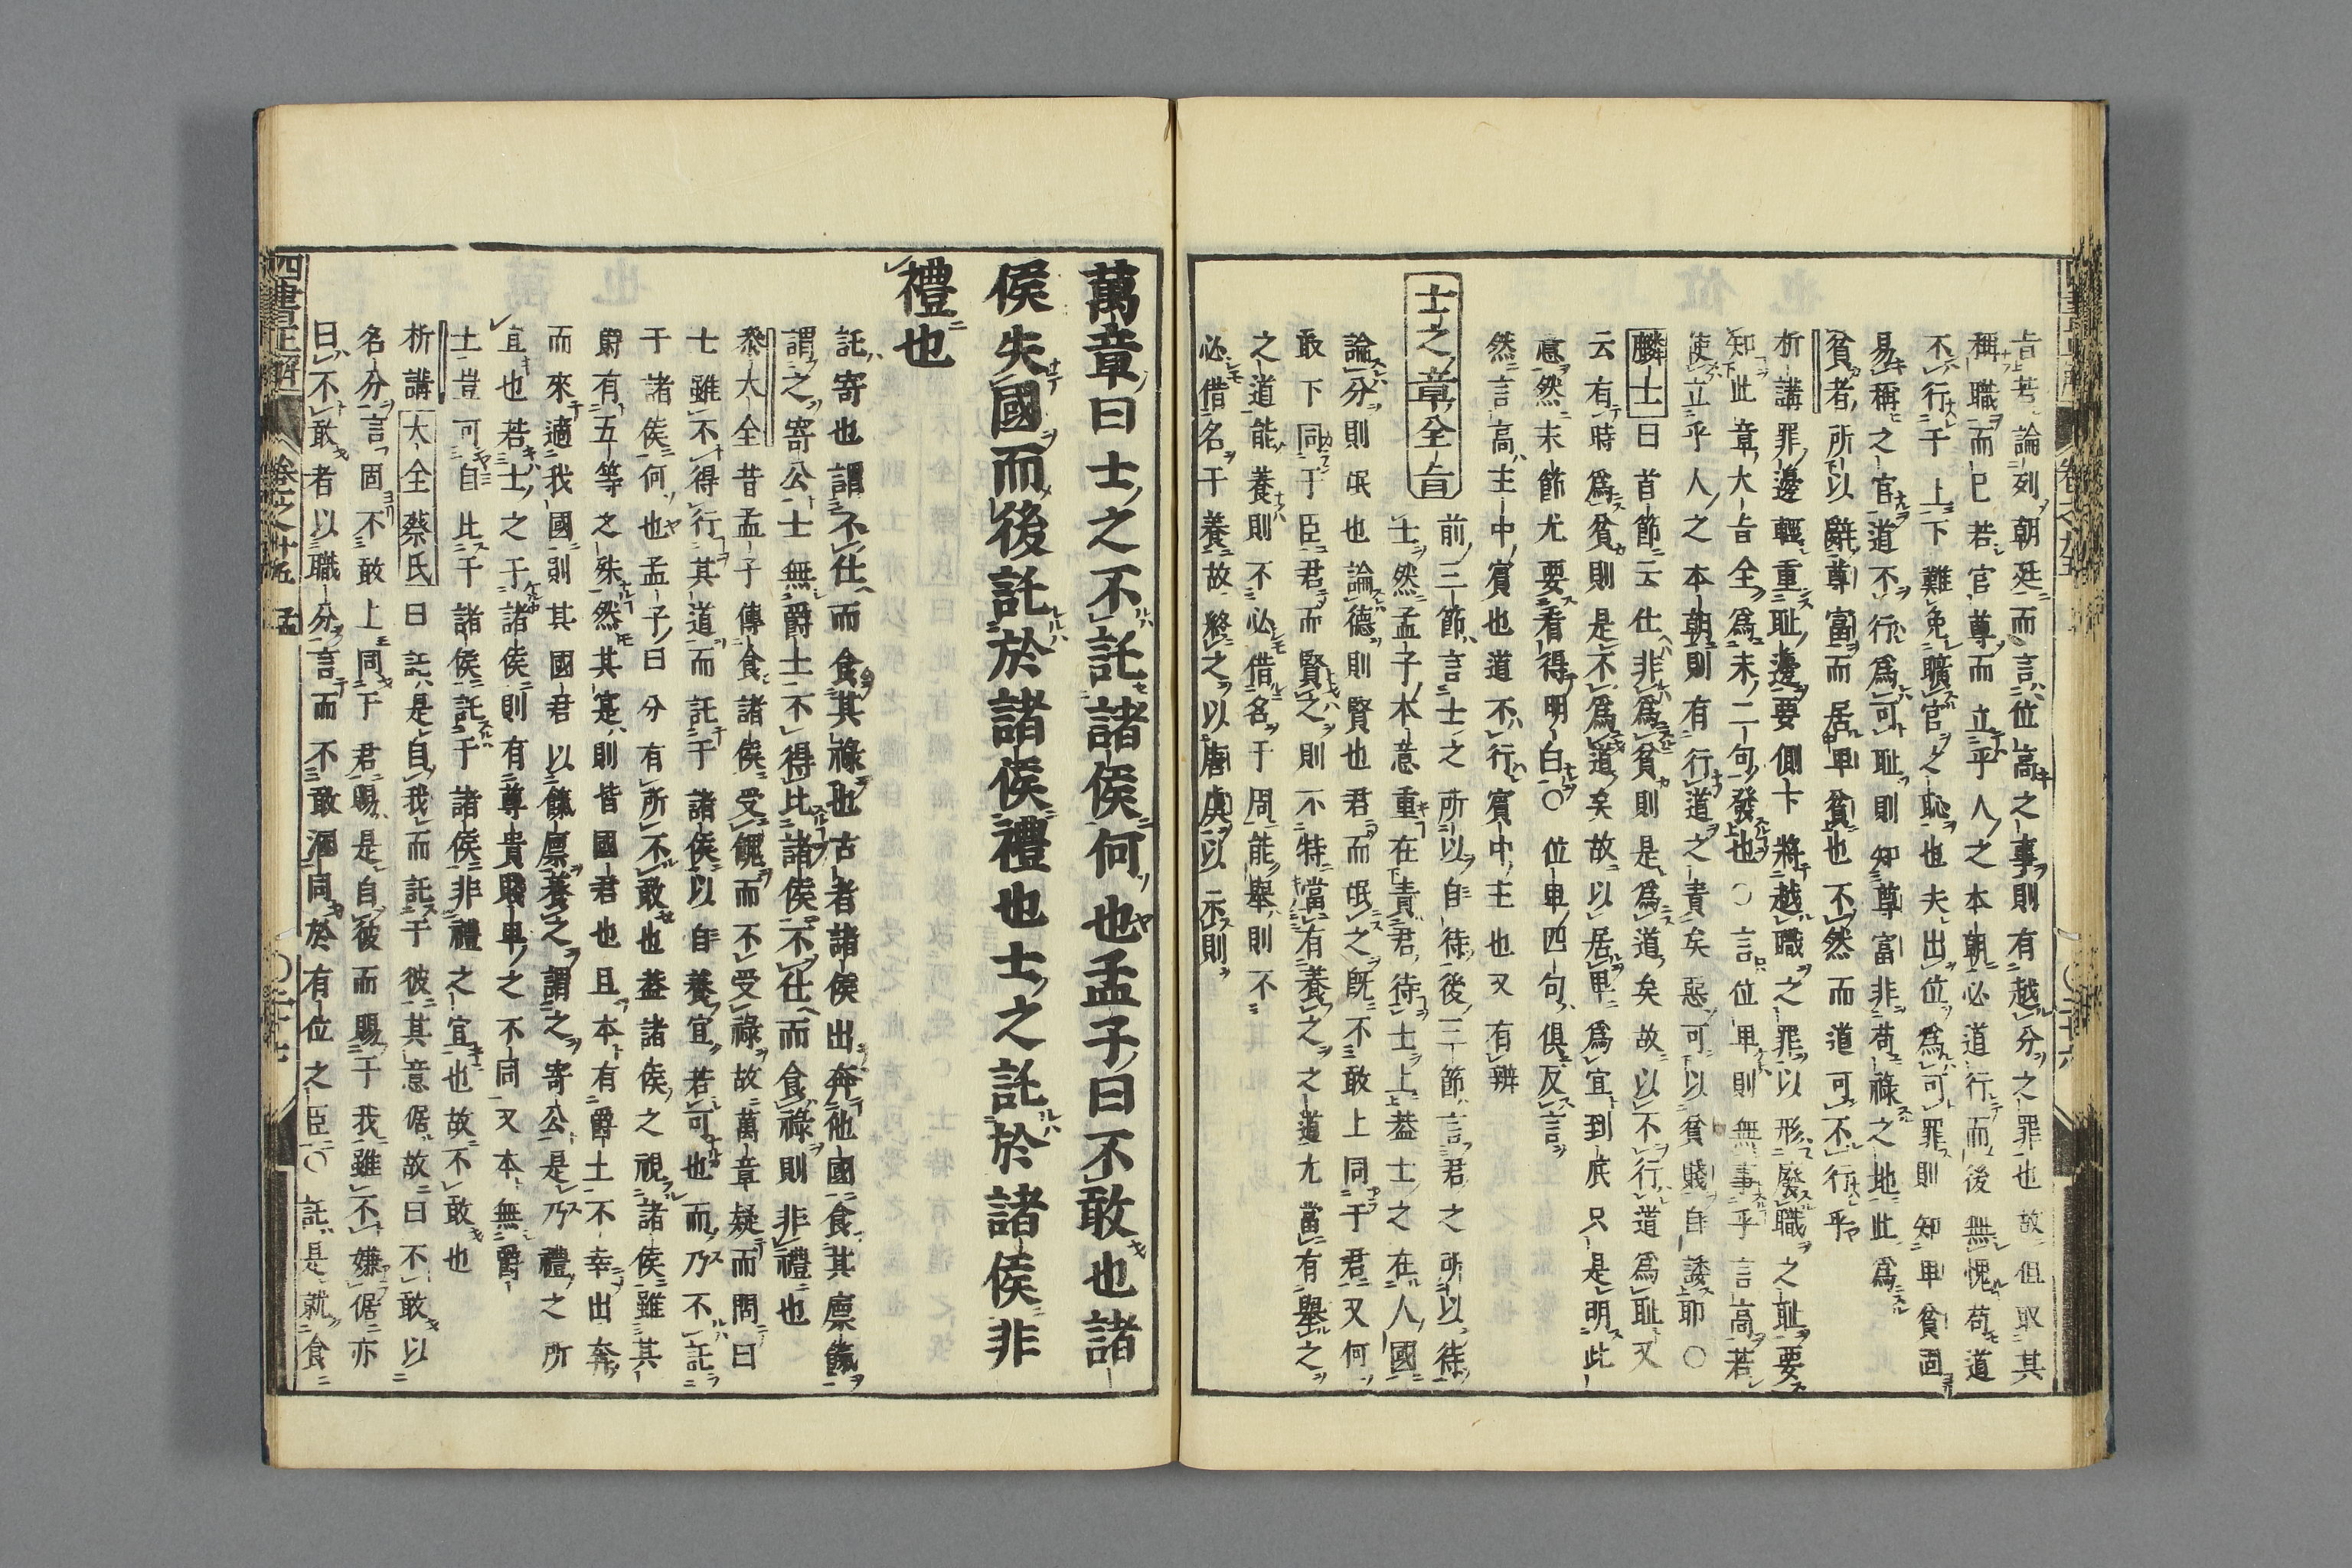 旨若論列朝廷而言位高之事則有越分之罪也故但取其
稱職而已若官尊而立乎人之本朝必道行而後無愧苟道
不行于上下難免曠官之恥也夫出位為可罪則知卑貧固
易稱之官道不行為可恥則知尊富非苟祿之地此為
貧者所以辭尊富而居卑貧也不然而道可不行乎
析講罪邊輕重恥邊要側卞將越職之罪以形廢職之恥要
知此章大旨全為末二句發也○言位卑則無事乎言高若
使立乎人之本朝則有行道之責矣惡可以貧賤自諉耶○
麟士曰首節云仕非為貧則是為道矣故以不行道為恥又
云有時為貧則是不為道矣故以居卑為宜到底只是明此
意然末節尤要看得明白○位卑四句俱反言
然言高主中賓也道不行賓中主也又有辨
士之章全旨
前三節言士之所以自待後三節言君之所以待
士然孟子本意重在責君待士上蓋士之在人國
論分則氓也論德則賢也君而氓之既不敢上同于君又何
敢下同于臣君而賢之則不特當有養之之道尤當有舉之
之道能養則不必借名于周能舉則不
必借名于養故終之以唐虞以示則
萬章曰士之不託諸侯何也孟子曰不敢也諸
侯失國而後託於諸侯禮也士之託於諸侯非
禮也
託寄也謂不仕而食其祿也古者諸侯出奔他國食其廩餼
謂之寄公士無爵土不得比諸侯不仕而食祿則非禮也
叅大全昔孟子傳食諸侯受餽而不受祿故萬章疑而問曰
士雖不得行其道而託于諸侯以自養宜若可也而乃不託
于諸侯何也孟子曰分有所不敢也蓋諸侯之視諸侯雖其
爵有五等之殊然其寔則皆國君也且本有爵土不幸出奔
而來適我國則其國君以餼廩養之謂之寄公是乃禮之所
宜也若士之于諸侯則有尊貴賤卑之不同又本無爵
土豈可自比于諸侯託于諸侯非禮之宜也故不敢也
析講大全蔡氏曰託是自我而託于彼其意倨故曰不敢以
名分言固不敢上同于君賜是自彼而賜于我雖不嫌倨亦
曰不敢者以職分言而不敢溷同於有位之臣○託是就食
四書正解
卷之廿五 孟
二十七